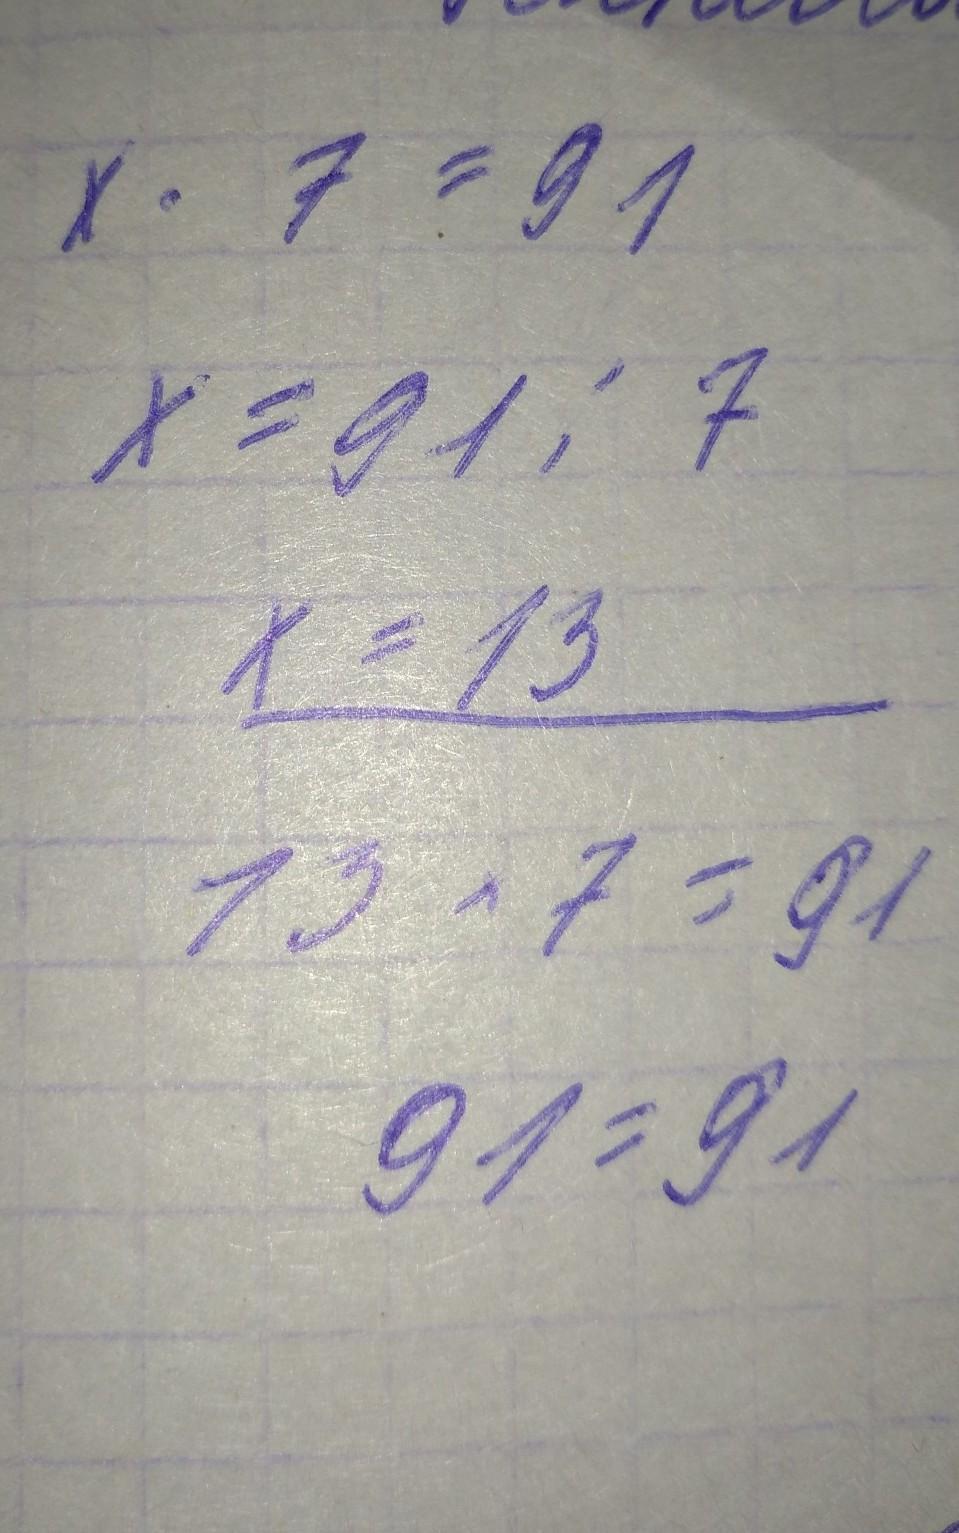 x · 7 = 91
x = 91 : 7
x = 13
13 · 7 = 91
91 = 91